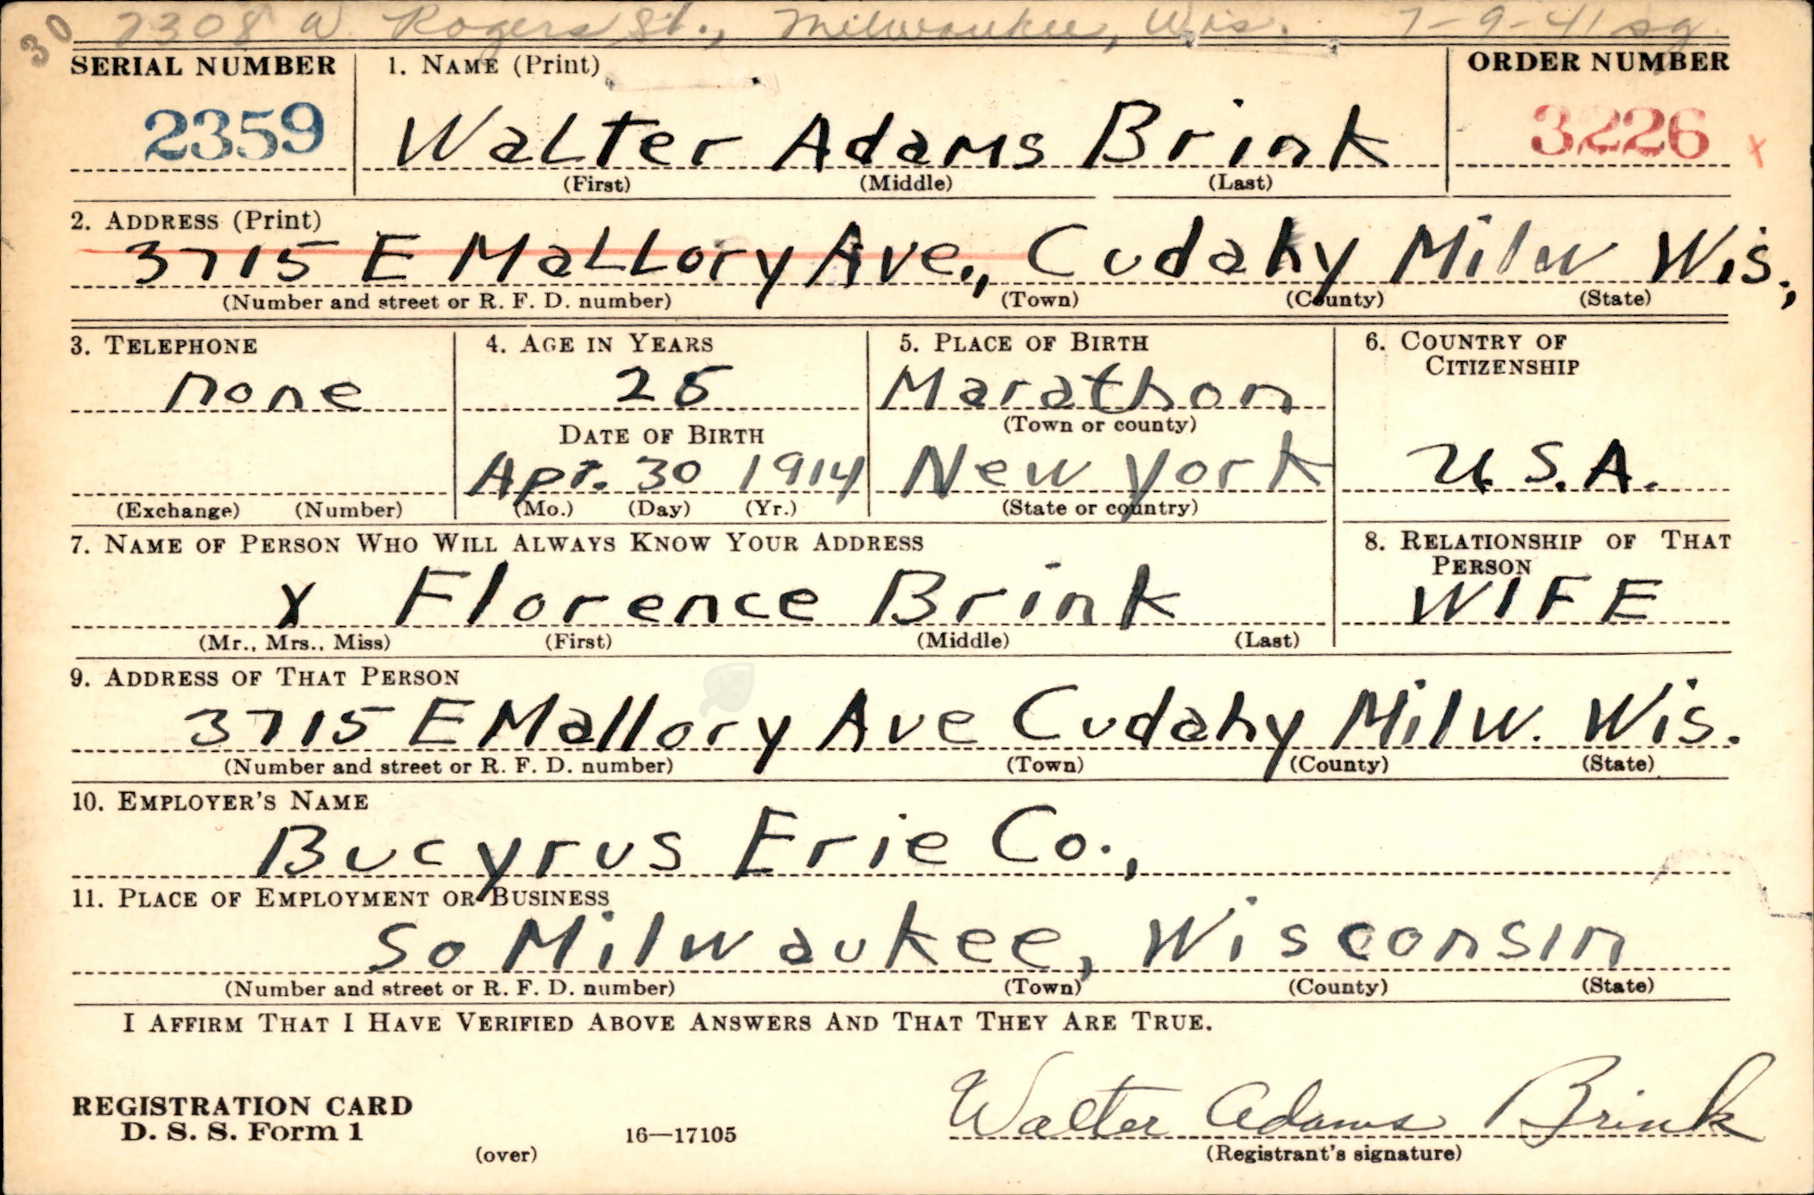 30 2308 W Rogers St., Milwaukee, Wis. 7-9-41 sg
SERIAL NUMBER 1. NAME (Print) ORDER NUMBER
2359 Walter Adams Brink 3226 X
(First) (Middle) (Last)
2. ADDRESS (Print)
3715 E Mallory Ave., Cudahy Milw Wis.,
(Number and street or R. F. D. number) (Town) (County) (State)
3. TELEPHONE 4. AGE IN YEARS 5. PLACE OF BIRTH 6. COUNTRY OF CITIZENSHIP
none 26 Marathon
(Town or county)
DATE OF BIRTH
Apr. 30 1914 New York U.S.A.
(Exchange) (Number) (Mo.) (Day) (Yr.) (State or country)
7. NAME OF PERSON WHO WILL ALWAYS KNOW YOUR ADDRESS 8. RELATIONSHIP OF THAT PERSON
X Florence Brink WIFE
(Mr., Mrs., Miss) (First) (Middle) (Last)
9. ADDRESS OF THAT PERSON
3715 E Mallory Ave Cudahy Milw. Wis.
(Number and street or R. F. D. number) (Town) (County) (State)
10. EMPLOYER'S NAME
Bucyrus Erie Co.,
11. PLACE OF EMPLOYMENT OR BUSINESS
So Milwaukee, Wisconsin
(Number and street or R. F. D. number) (Town) (County) (State)
I AFFIRM THAT I HAVE VERIFIED ABOVE ANSWERS AND THAT THEY ARE TRUE.
REGISTRATION CARD
D. S. S. Form 1 Walter Adams Brink
(over) 16—17105 (Registrant's signature)